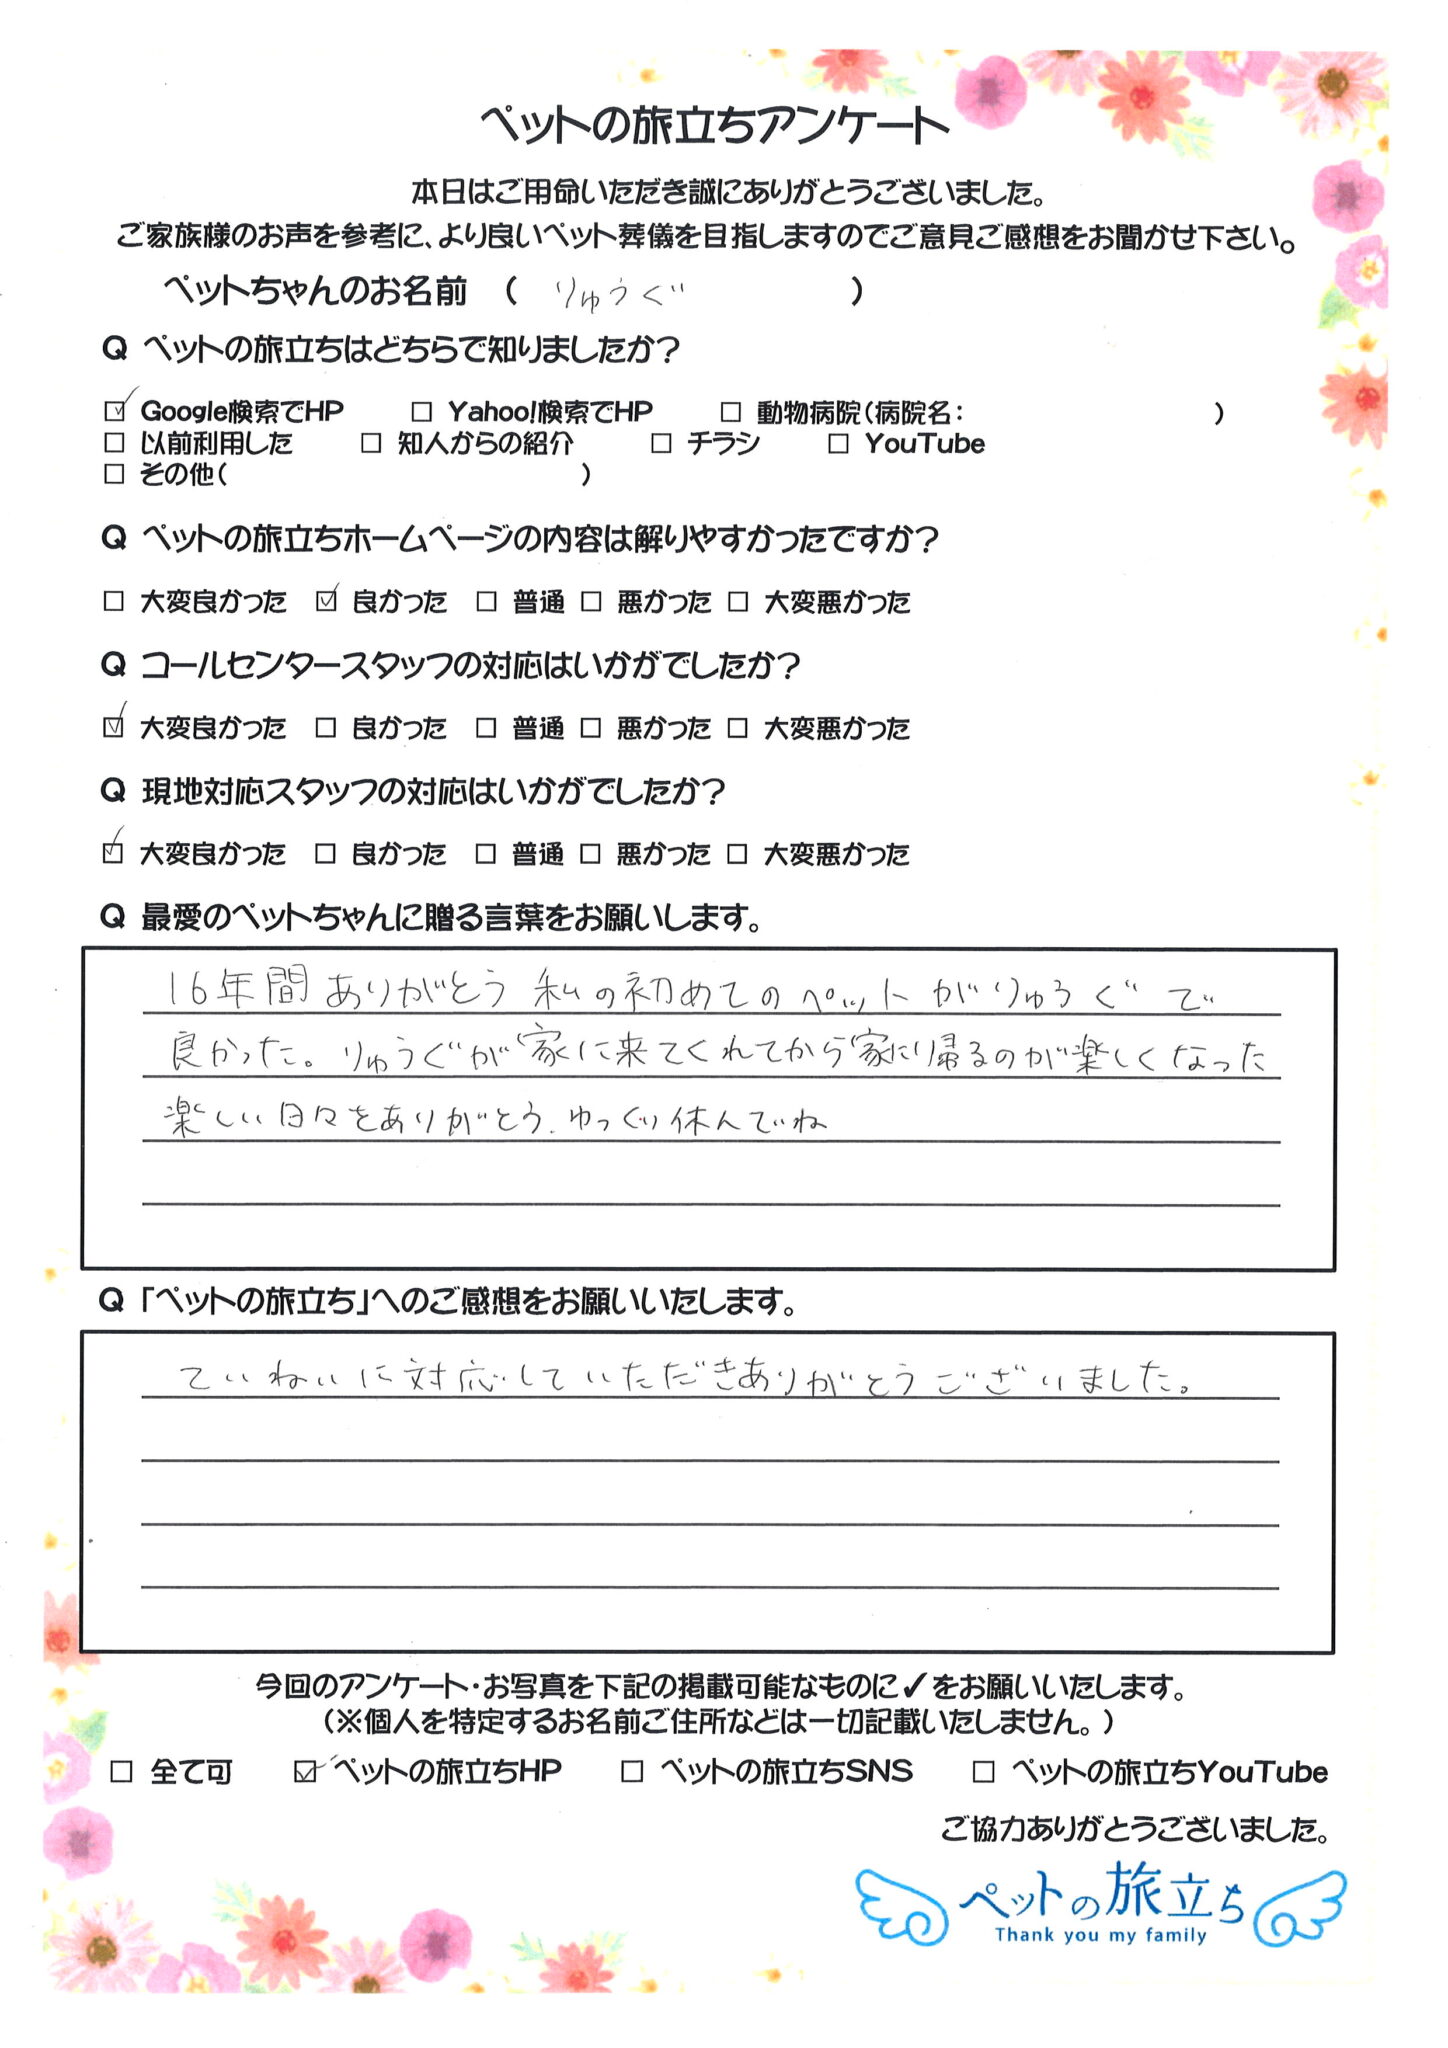 ペットの旅立ちアンケート
本日はご用命いただき誠にありがとうございました。
ご家族様のお声を参考に、より良いペット葬儀を目指しますのでご意見ご感想をお聞かせ下さい。
ペットちゃんのお名前 ( りゅうぐ )
Q ペットの旅立ちはどちらで知りましたか?
☑ Google検索でHP □ Yahoo!検索でHP □ 動物病院(病院名: )
□ 以前利用した □ 知人からの紹介 □ チラシ □ YouTube
□ その他( )
Q ペットの旅立ちホームページの内容は解りやすかったですか?
□ 大変良かった ☑ 良かった □ 普通 □ 悪かった □ 大変悪かった
Q コールセンタースタッフの対応はいかがでしたか?
☑ 大変良かった □ 良かった □ 普通 □ 悪かった □ 大変悪かった
Q 現地対応スタッフの対応はいかがでしたか?
☑ 大変良かった □ 良かった □ 普通 □ 悪かった □ 大変悪かった
Q 最愛のペットちゃんに贈る言葉をお願いします。
16年間ありがとう 私の初めてのペットがりゅうぐで
良かった。りゅうぐが家に来てくれてから家に帰るのが楽しくなった
楽しい日々をありがとう.ゆっくり休んでね
Q 「ペットの旅立ち」へのご感想をお願いいたします。
ていねいに対応していただきありがとうございました。
今回のアンケート・お写真を下記の掲載可能なものに✓をお願いいたします。
(※個人を特定するお名前ご住所などは一切記載いたしません。)
□ 全て可 ☑ ペットの旅立ちHP □ ペットの旅立ちSNS □ ペットの旅立ちYouTube
ご協力ありがとうございました。
ペットの旅立ち
Thank you my family